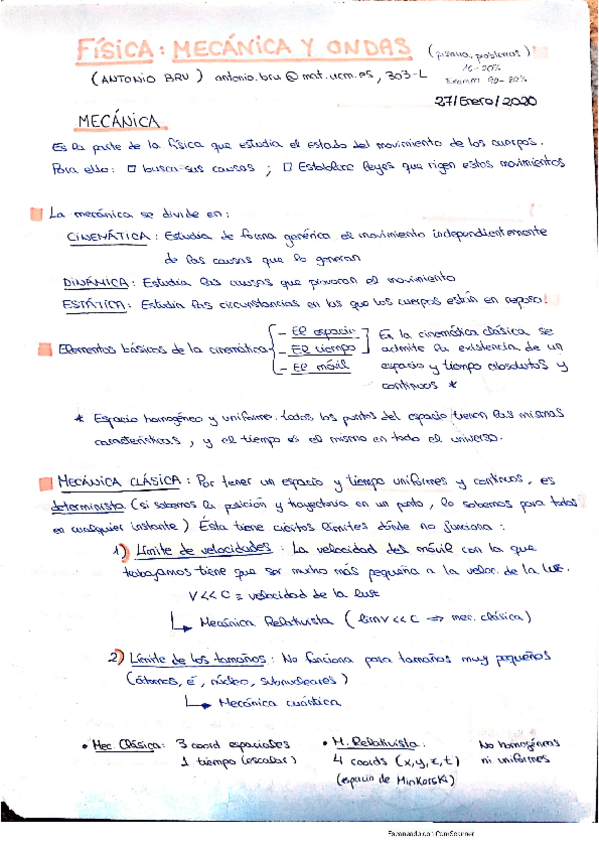 FÍSICA: MECÁNICA Y ONDAS (pizarra, problemas)
10-20%
(ANTONIO BRU) antonio.bru@mat.ucm.es, 303-L Examen 80-90%
27/Enero/2020
MECÁNICA
Es la parte de la física que estudia el estado del movimiento de los cuerpos.
Para ello: □ busca sus causas ; □ Establece leyes que rigen estos movimientos
La mecánica se divide en:
CINEMÁTICA: Estudia de forma genérica el movimiento independientemente
de las causas que lo generan
DINÁMICA: Estudia las causas que provocan el movimiento
ESTÁTICA: Estudia las circunstancias en las que los cuerpos están en reposo.
Elementos básicos de la cinemática
- El espacio
- El tiempo
- El móvil
En la cinemática clásica se
admite la existencia de un
espacio y tiempo absolutos y
continuos *
* Espacio homogéneo y uniforme. todos los puntos del espacio tienen las mismas
características, y el tiempo es el mismo en todo el universo.
MECÁNICA CLÁSICA: Por tener un espacio y tiempo uniformes y continuos, es
determinista (si sabemos la posición y trayectoria en un punto, lo sabemos para todos
en cualquier instante) Ésta tiene ciertos límites dónde no funciona:
1) Límite de velocidades: La velocidad del móvil con la que
trabajamos tiene que ser mucho más pequeña a la veloc. de la luz.
V<<C ≡ velocidad de la luz
↳ Mecánica Relativista (lim V<<C ⇒ mec. clásica)
2) Límite de los tamaños: No funciona para tamaños muy pequeños
(átomos, é, núcleo, subnucleares)
↳ Mecánica cuántica
• Mec. Clásica: 3 coord espaciales
1 tiempo (escalar)
• M. Relativista:
4 coords (x,y,z,t)
(espacio de Minkorski)
No homogéneos
ni uniformes
Escaneado con CamScanner